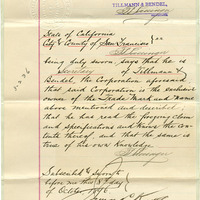 TILLMANN & BENDEL,
State of California
City & County of San Francisco } ss
being duly sworn, says that he is
Secretary of Tillmann &
Bendel, the Corporation aforesaid
that said Corporation is the exclusive
owner of the Trade Mark and Name
above mentioned and described,
that he has read the foregoing claim
and specifications and knows the con-
tents thereof and that the same is
true of his own Knowledge
Subscribed & Sworn to
before me this 8th day
of October 1896